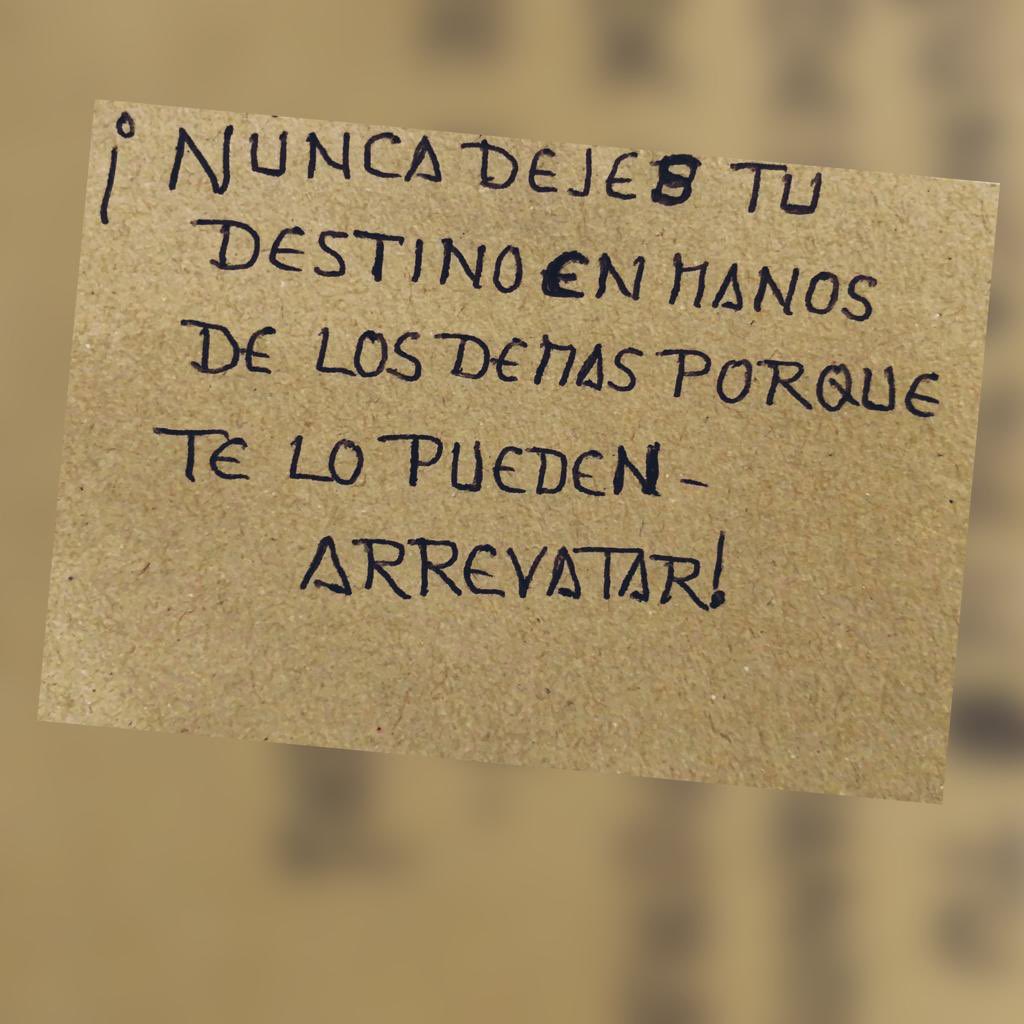 ¡ NUNCA DEJES TU
DESTINO EN MANOS
DE LOS DEMAS PORQUE
TE LO PUEDEN-
ARREVATAR!